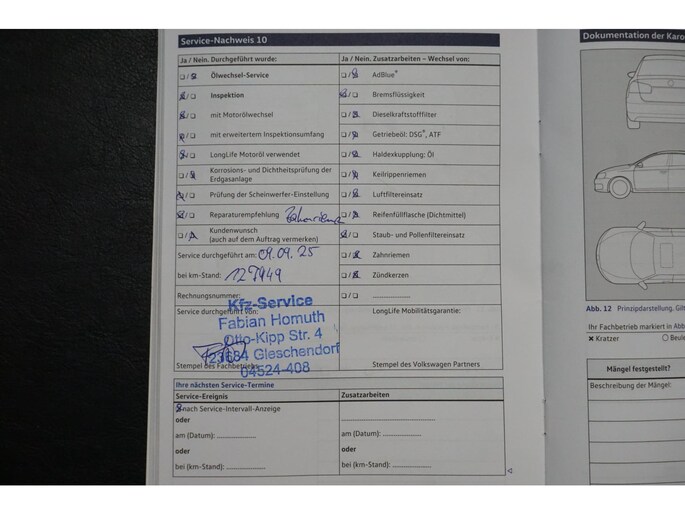 Service-Nachweis 10
Ja / Nein. Durchgeführt wurde:
Ölwechsel-Service
Inspektion
mit Motorölwechsel
mit erweitertem Inspektionsumfang
LongLife Motoröl verwendet
Korrosions- und Dichtheitsprüfung der
Erdgasanlage
Prüfung der Scheinwerfer-Einstellung
Reparaturempfehlung Zahnriemen
Kundenwunsch
(auch auf dem Auftrag vermerken)
Service durchgeführt am: 09.09.25
bei km-Stand: 127449
Rechnungsnummer:
Service durchgeführt von:
Kfz-Service
Fabian Homuth
Otto-Kipp Str. 4
23684 Gleschendorf
04524-408
Stempel des Fachbetriebs
Ja / Nein. Zusatzarbeiten – Wechsel von:
AdBlue®
Bremsflüssigkeit
Dieselkraftstofffilter
Getriebeöl: DSG®, ATF
Haldexkupplung: Öl
Keilrippenriemen
Luftfiltereinsatz
Reifenfüllflasche (Dichtmittel)
Staub- und Pollenfiltereinsatz
Zahnriemen
Zündkerzen
LongLife Mobilitätsgarantie:
Stempel des Volkswagen Partners
Ihre nächsten Service-Termine
Service-Ereignis
nach Service-Intervall-Anzeige
oder
am (Datum):
oder
bei (km-Stand):
Zusatzarbeiten
am (Datum):
oder
bei (km-Stand):
Dokumentation der Karo
Abb. 12 Prinzipdarstellung. Gilt
Ihr Fachbetrieb markiert in Abb
Kratzer
Beule
Mängel festgestellt?
Beschreibung der Mängel: